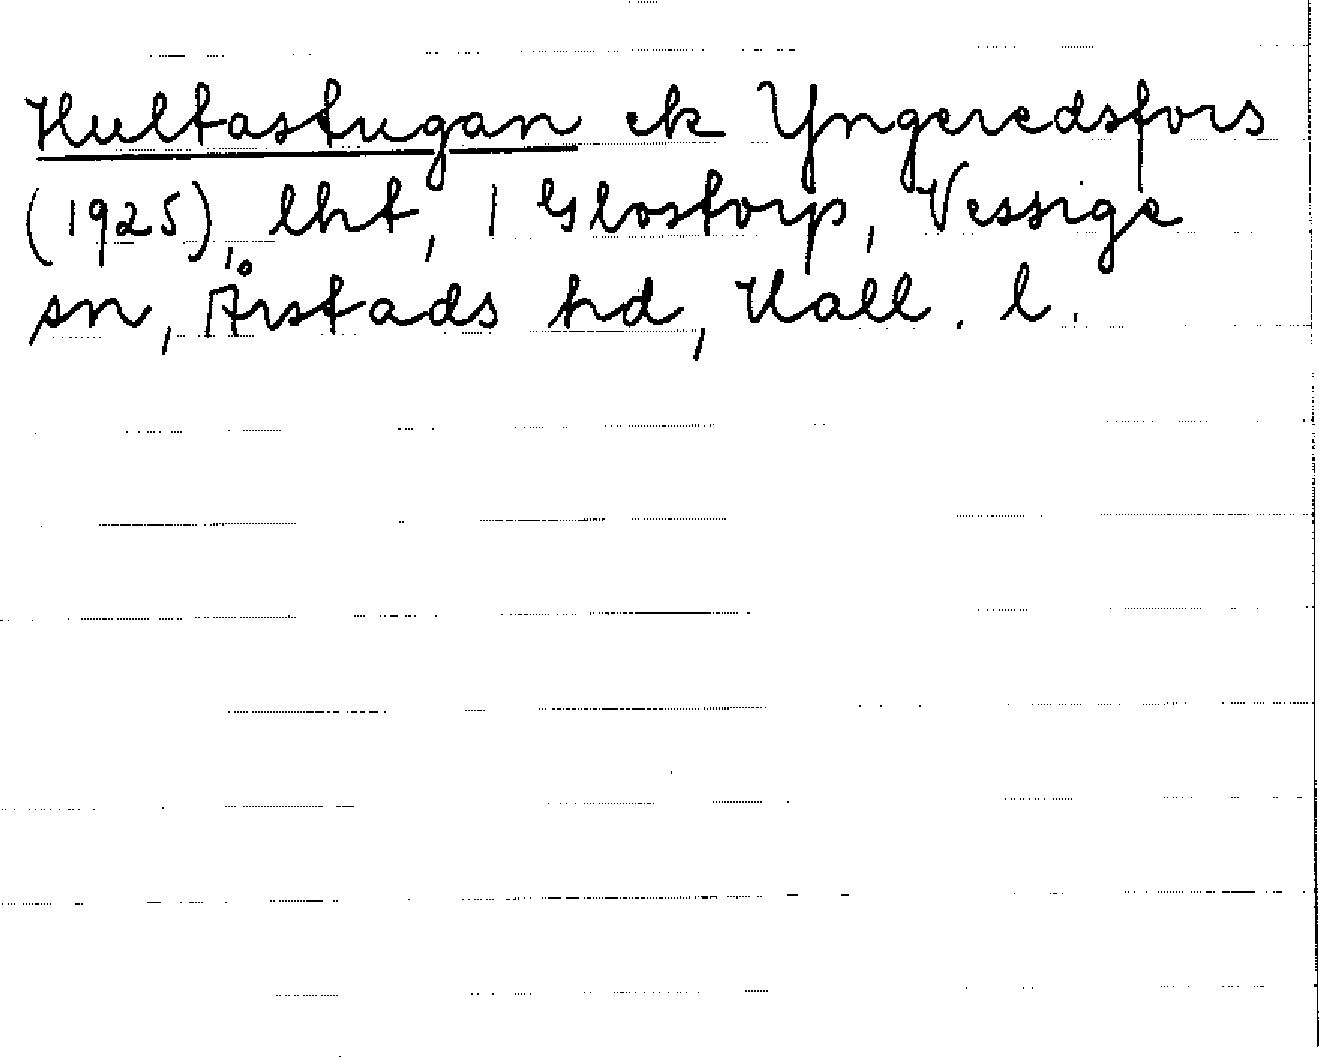 Hultastugan ek Yngeredsfors
(1925), lht, 1 Glostorp, Vessige
sn, Årstads hd, Hall. l.